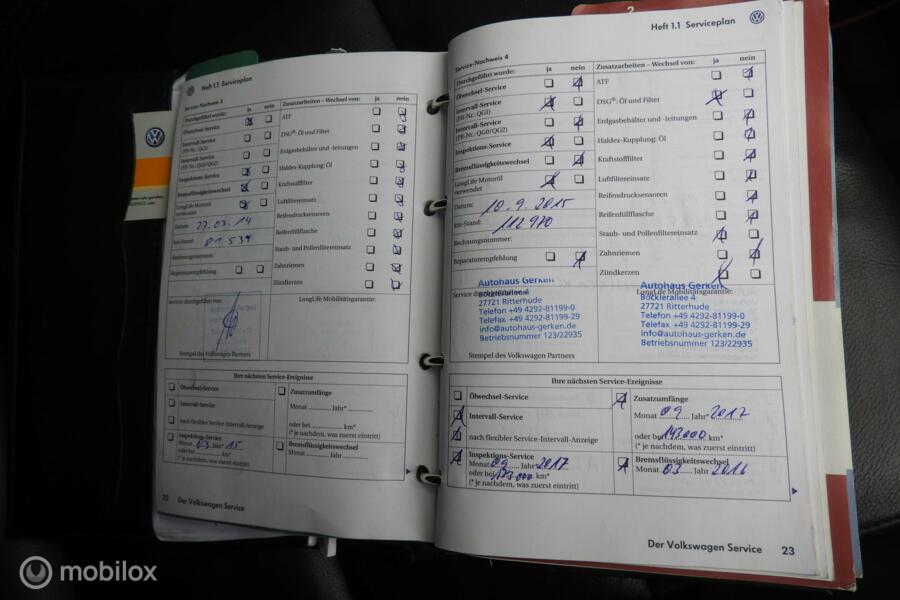 Heft 1.1 Serviceplan
Service-Nachweis 3
Durchgeführt wurde: ja nein
Ölwechsel-Service
Intervall-Service
(PR-Nr.: QG1)
Intervall-Service
(PR-Nr.: QG0/QG2)
Inspektions-Service
Bremsflüssigkeitswechsel
LongLife Motoröl
verwendet
Datum: 27.03.14
km-Stand: 81539
Rechnungsnummer:
Reparaturempfehlung
Zusatzarbeiten – Wechsel von: ja nein
ATF
DSG®: Öl und Filter
Erdgasbehälter und -leitungen
Haldex-Kupplung: Öl
Kraftstofffilter
Luftfiltereinsatz
Reifendrucksensoren
Reifenfüllflasche
Staub- und Pollenfiltereinsatz
Zahnriemen
Zündkerzen
Service durchgeführt von:
LongLife Mobilitätsgarantie:
Stempel des Volkswagen Partners
Ihre nächsten Service-Ereignisse
Ölwechsel-Service
Intervall-Service
nach flexibler Service-Intervall-Anzeige
Inspektions-Service
Monat 03 Jahr* 15
oder bei km*
(* je nachdem, was zuerst eintritt)
Zusatzumfänge
Monat Jahr*
oder bei km*
(* je nachdem, was zuerst eintritt)
Bremsflüssigkeitswechsel
Monat Jahr
22 Der Volkswagen Service
Heft 1.1 Serviceplan
Service-Nachweis 4
Durchgeführt wurde: ja nein
Ölwechsel-Service
Intervall-Service
(PR-Nr.: QG1)
Intervall-Service
(PR-Nr.: QG0/QG2)
Inspektions-Service
Bremsflüssigkeitswechsel
LongLife Motoröl
verwendet
Datum: 10.9.2015
km-Stand: 112970
Rechnungsnummer:
Reparaturempfehlung
Zusatzarbeiten – Wechsel von: ja nein
ATF
DSG®: Öl und Filter
Erdgasbehälter und -leitungen
Haldex-Kupplung: Öl
Kraftstofffilter
Luftfiltereinsatz
Reifendrucksensoren
Reifenfüllflasche
Staub- und Pollenfiltereinsatz
Zahnriemen
Zündkerzen
Service durchgeführt von:
Autohaus Gerken
Böcklerallee 4
27721 Ritterhude
Telefon +49 4292-81199-0
Telefax +49 4292-81199-29
info@autohaus-gerken.de
Betriebsnummer 123/22935
Stempel des Volkswagen Partners
LongLife Mobilitätsgarantie:
Autohaus Gerken
Böcklerallee 4
27721 Ritterhude
Telefon +49 4292-81199-0
Telefax +49 4292-81199-29
info@autohaus-gerken.de
Betriebsnummer 123/22935
Ihre nächsten Service-Ereignisse
Ölwechsel-Service
Intervall-Service
nach flexibler Service-Intervall-Anzeige
Inspektions-Service
Monat 09 Jahr 2017
oder bei km*
(* je nachdem, was zuerst eintritt)
Zusatzumfänge
Monat 09 Jahr* 2017
oder bei 143000 km*
(* je nachdem, was zuerst eintritt)
Bremsflüssigkeitswechsel
Monat 03 Jahr 2016
Der Volkswagen Service 23
mobilox